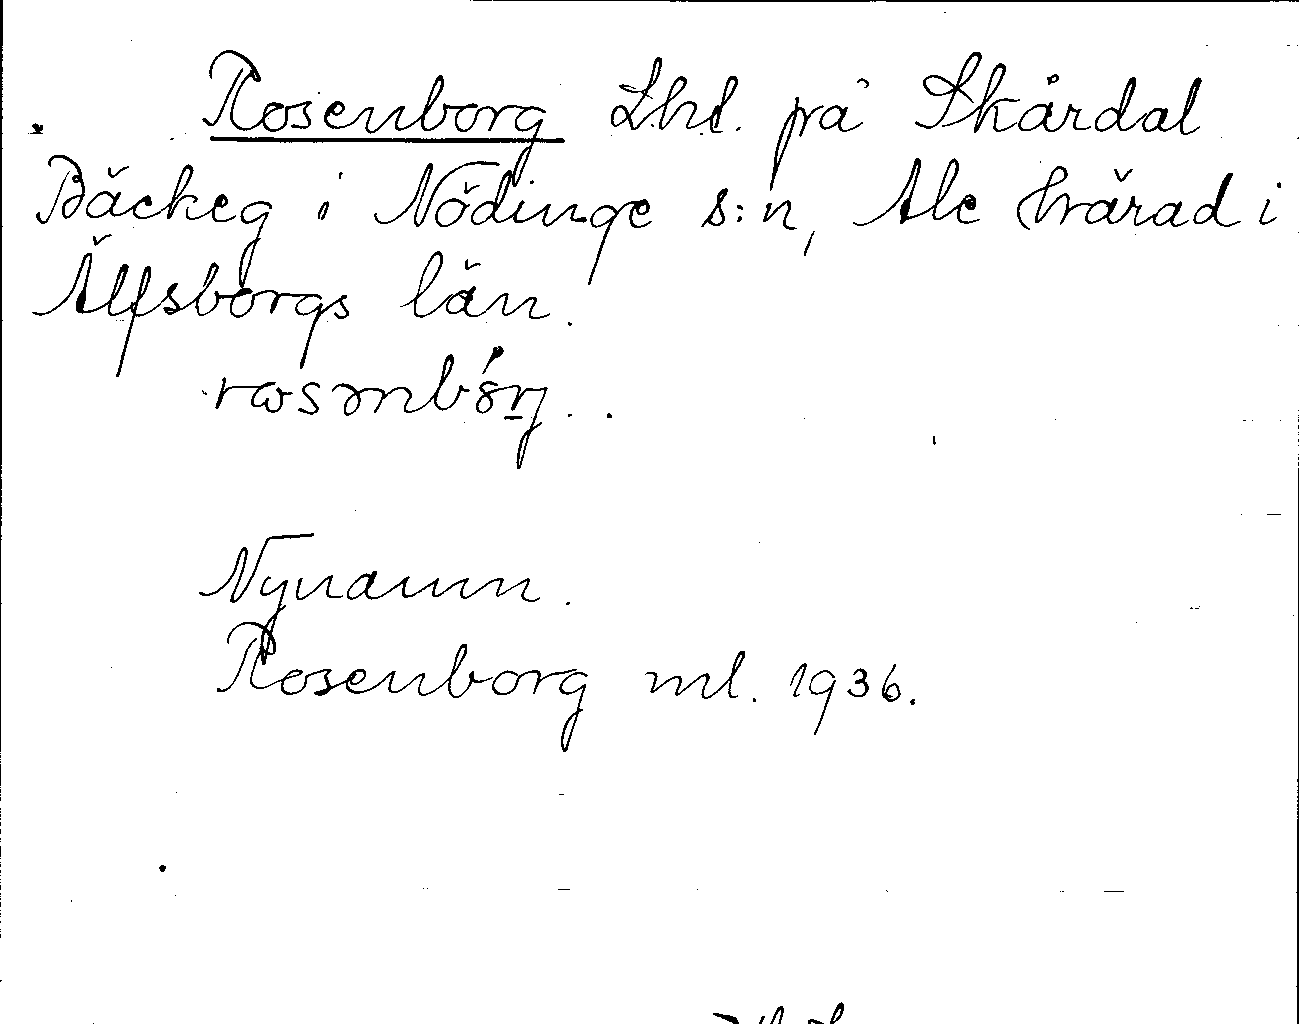 Rosenborg Lht. på Skårdal
Bäckeg i Nödinge s:n, Ale härad i
Älfsborgs län.
Nynamn.
Rosenborg ml. 1936.